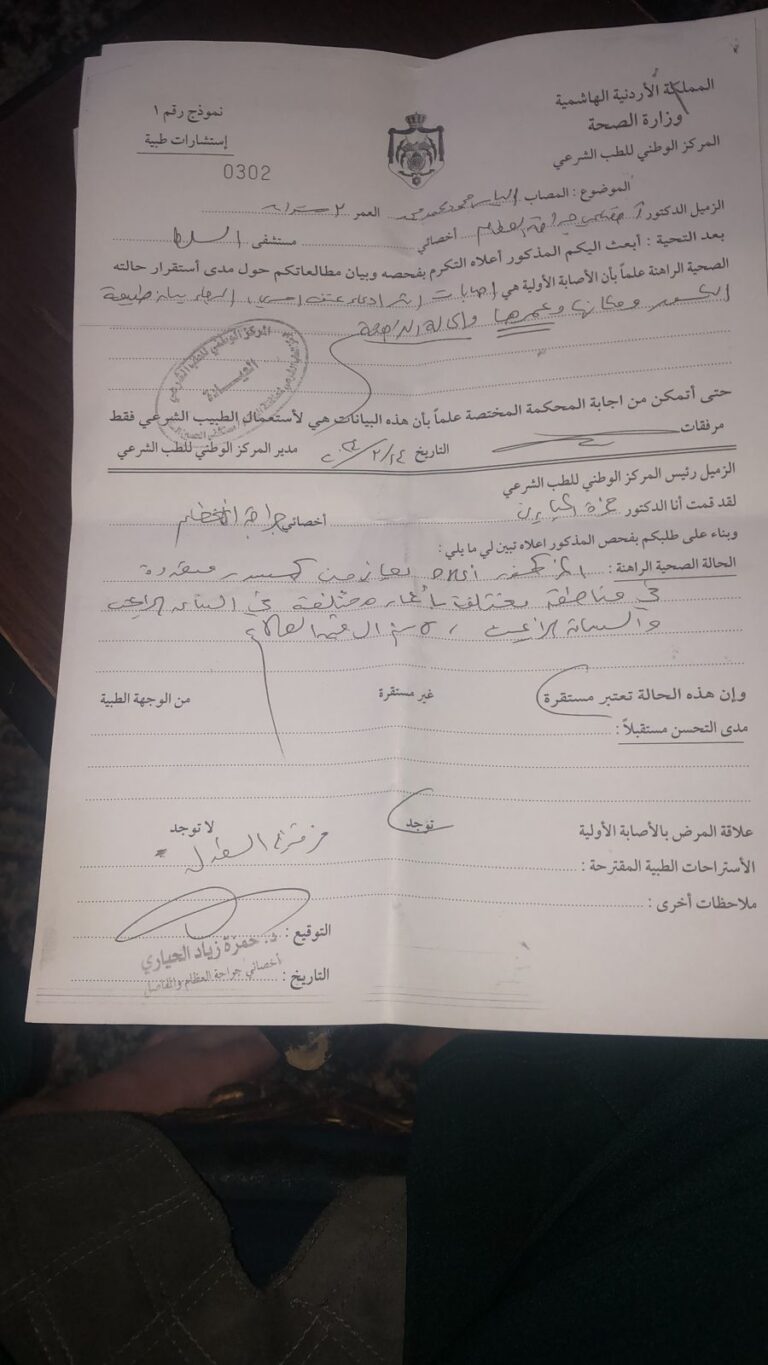 المملكة الأردنية الهاشمية
وزارة الصحة
المركز الوطني للطب الشرعي
نموذج رقم ١
إستشارات طبية
0302
الموضوع : المصاب الياس محمود محمد العمر ٢ سنوات
الزميل الدكتور جراحة العظام أخصائي مستشفى السلط
بعد التحية : أبعث اليكم المذكور أعلاه التكرم بفحصه وبيان مطالعاتكم حول مدى أستقرار حالته
الصحية الراهنة علماً بأن الأصابة الأولية هي إصابات اثر ادعاء عنف اسري، الرجاء بيان طبيعة
الكسور ومكانها وعمرها والحالة الراهنة
المركز الوطني للطب الشرعي
العيـــادة
حتى أتمكن من اجابة المحكمة المختصة علماً بأن هذه البيانات هي لأستعمال الطبيب الشرعي فقط
مرفقات
التاريخ ٢/٢٤ مدير المركز الوطني للطب الشرعي
الزميل رئيس المركز الوطني للطب الشرعي
لقد قمت أنا الدكتور حمزة الحياري أخصائي جراحة العظام
وبناء على طلبكم بفحص المذكور اعلاه تبين لي ما يلي :
الحالة الصحية الراهنة : المذكور أعلاه يعاني من كسور متعددة
في مناطق مختلفة بأعمار مختلفة في
وإن هذه الحالة تعتبر مستقرة غير مستقرة من الوجهة الطبية
مدى التحسن مستقبلاً :
علاقة المرض بالأصابة الأولية توجد لا توجد
الأستراحات الطبية المقترحة :
ملاحظات أخرى :
التوقيع :
د. حمزة زياد الحياري
أخصائي جراحة العظام والمفاصل
التاريخ :